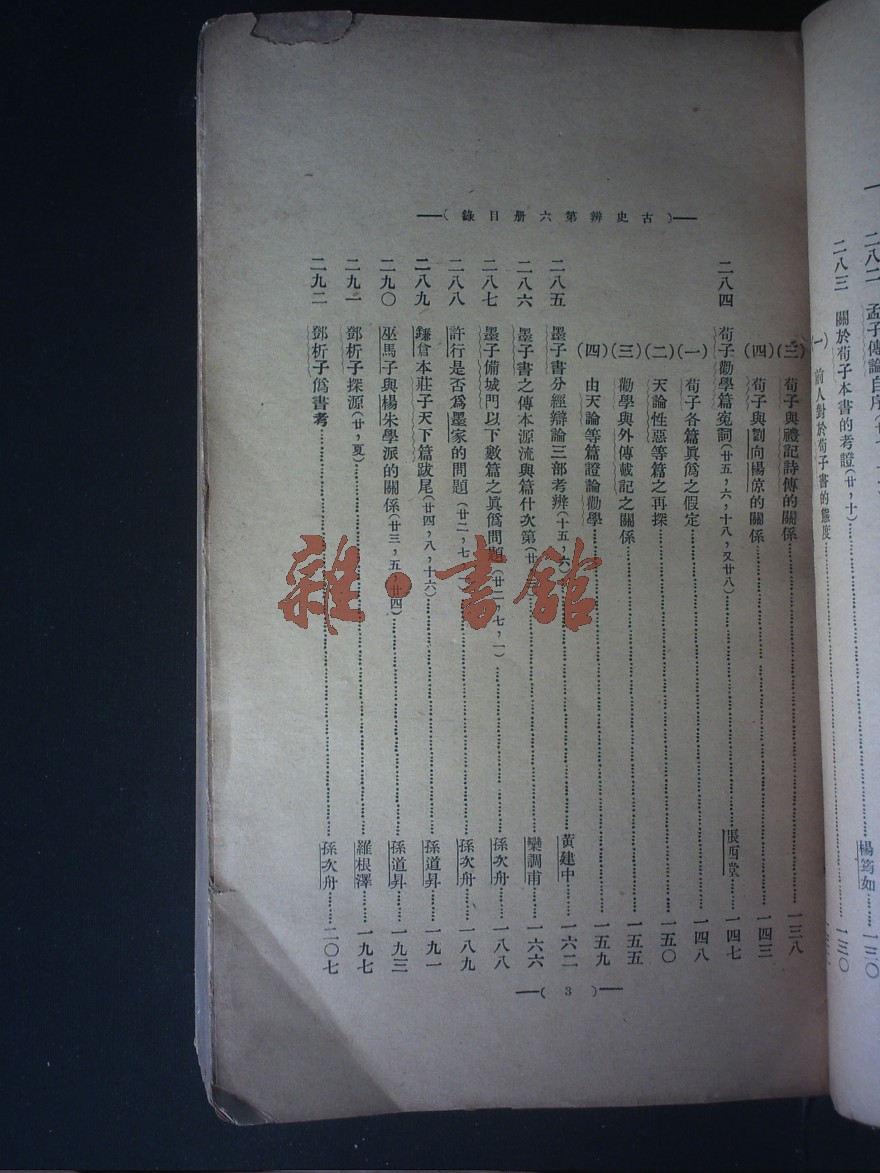 二八二 孟子傳論自序 楊筠如……一三〇
二八三 關於荀子本書的考證(廿,十)……一三〇
(一) 前人對於荀子書的態度
(三) 荀子與禮記詩傳的關係……一三八
(四) 荀子與劉向楊倞的關係……一四三
二八四 荀子勸學篇冤詞(廿五,六,十八,又廿八)……張西堂……一四七
(一) 荀子各篇眞僞之假定……一四八
(二) 天論性惡等篇之再探……一五〇
(三) 勸學與外傳載記之關係……一五五
(四) 由天論等篇證論勸學……一五九
二八五 墨子書分經辯論三部考辨(十五,六)……黃建中……一六二
二八六 墨子書之傳本源流與篇什次第(廿……欒調甫……一六六
二八七 墨子備城門以下數篇之眞僞問題(廿二,七,一)……孫次舟……一八八
二八八 許行是否爲墨家的問題(廿二,七……孫次舟……一八九
二八九 鎌倉本莊子天下篇跋尾(廿四,八,十六)……孫道昇……一九一
二九〇 巫馬子與楊朱學派的關係(廿三,五,廿四)……孫道昇……一九三
二九一 鄧析子探源(廿,夏)……羅根澤……一九七
二九二 鄧析子僞書考……孫次舟……二〇七
古史辨第六册目錄
(3)
雜·書館